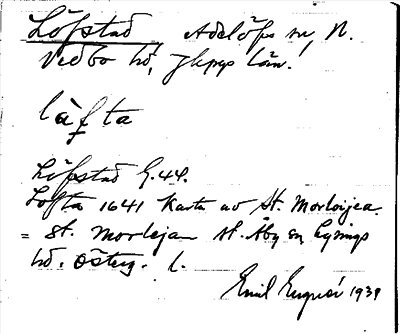 Löfstad Adelöfs sn, N.
Vedbo hd, Jkpgs län.
làfta
Löfstad G.44.
Lofta 1641 Karta av St. Morloijea
= St. Morleja St. Åby sn Lysings
hd. Österg. l.
Emil 1939